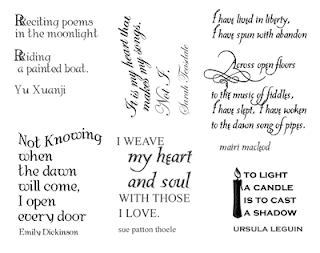 Reciting poems
in the moonlight
Riding
a painted boat.
Yu Xuanji
It is my heart that
makes my songs,
Not I.
Sarah Teasdale
I have lived in liberty,
I have spun with abandon
Across open floors
to the music of fiddles,
I have slept, I have woken
to the dawn song of pipes.
mairi macleod
Not Knowing
when
the dawn
will come,
I open
every door
Emily Dickinson
I WEAVE
my heart
and soul
WITH THOSE
I LOVE.
sue patton thoele
TO LIGHT
A CANDLE
IS TO CAST
A SHADOW
URSULA LEGUIN